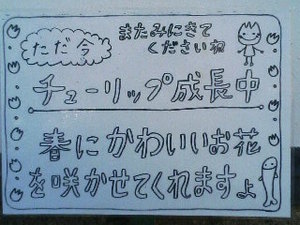 ただ今
またみにきて
くださいね
チューリップ成長中
春にかわいいお花
を咲かせてくれますよ